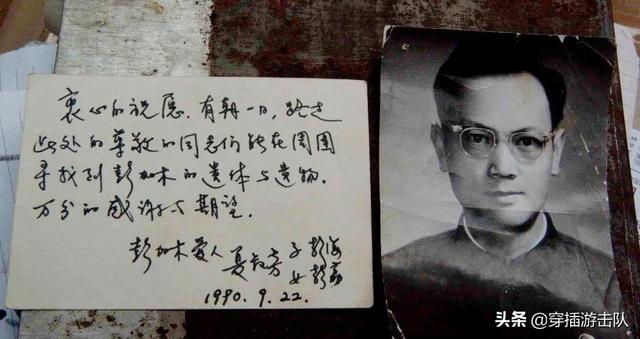 衷心的祝愿.有朝一日,路过
此处的尊敬的同志们能在周围
寻找到彭加木的遗体与遗物.
万分的感谢与期望.
彭加木爱人 夏叔芳 子彭海
女彭荔
1990.9.22.
头条 @穿插游击队